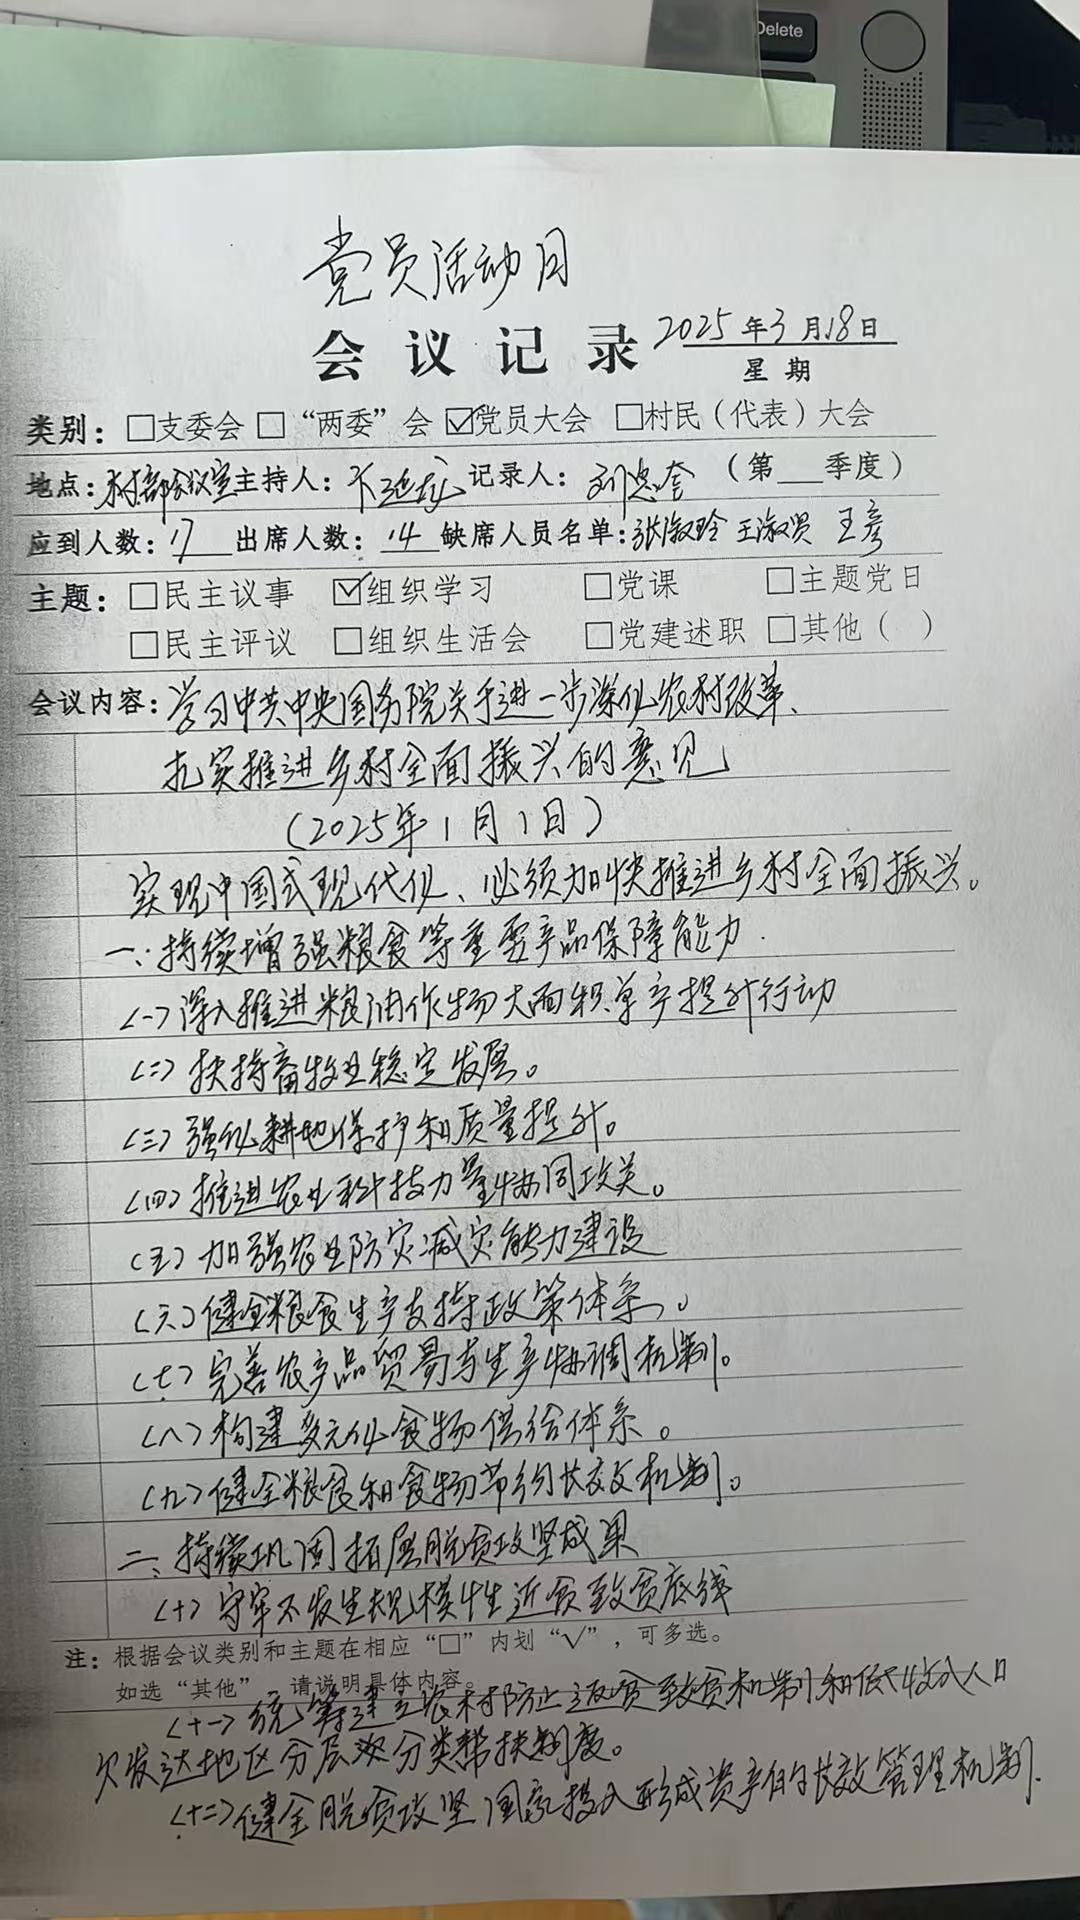 Delete
党员活动日
会议记录 2025年3月18日
星期
类别：□支委会 □“两委”会 ☑党员大会 □村民（代表）大会
地点：村部会议室 主持人： 记录人：刘忠奎 （第___季度）
应到人数：17 出席人数：14 缺席人员名单：张淑玲 王淑贤 王彦
主题：□民主议事 ☑组织学习 □党课 □主题党日
□民主评议 □组织生活会 □党建述职 □其他（ ）
会议内容：学习中共中央国务院关于进一步深化农村改革、
扎实推进乡村全面振兴的意见
（2025年1月1日）
实现中国式现代化、必须加快推进乡村全面振兴。
一、持续增强粮食等重要产品保障能力.
（一）深入推进粮油作物大面积单产提升行动
（二）扶持畜牧业稳定发展。
（三）强化耕地保护和质量提升。
（四）推进农业科技力量协同攻关。
（五）加强农业防灾减灾能力建设
（六）健全粮食生产支持政策体系。
（七）完善农产品贸易与生产协调机制。
（八）构建多元化食物供给体系。
（九）健全粮食和食物节约长效机制。
二、持续巩固拓展脱贫攻坚成果
（十）守牢不发生规模性返贫致贫底线
注：根据会议类别和主题在相应“□”内划“√”，可多选。
如选“其他” 请说明具体内容。
（十一）统筹建立农村防止返贫致贫机制和低收入人口
欠发达地区分层次分类帮扶制度。
（十二）健全脱贫攻坚国家投入形成资产的长效管理机制.